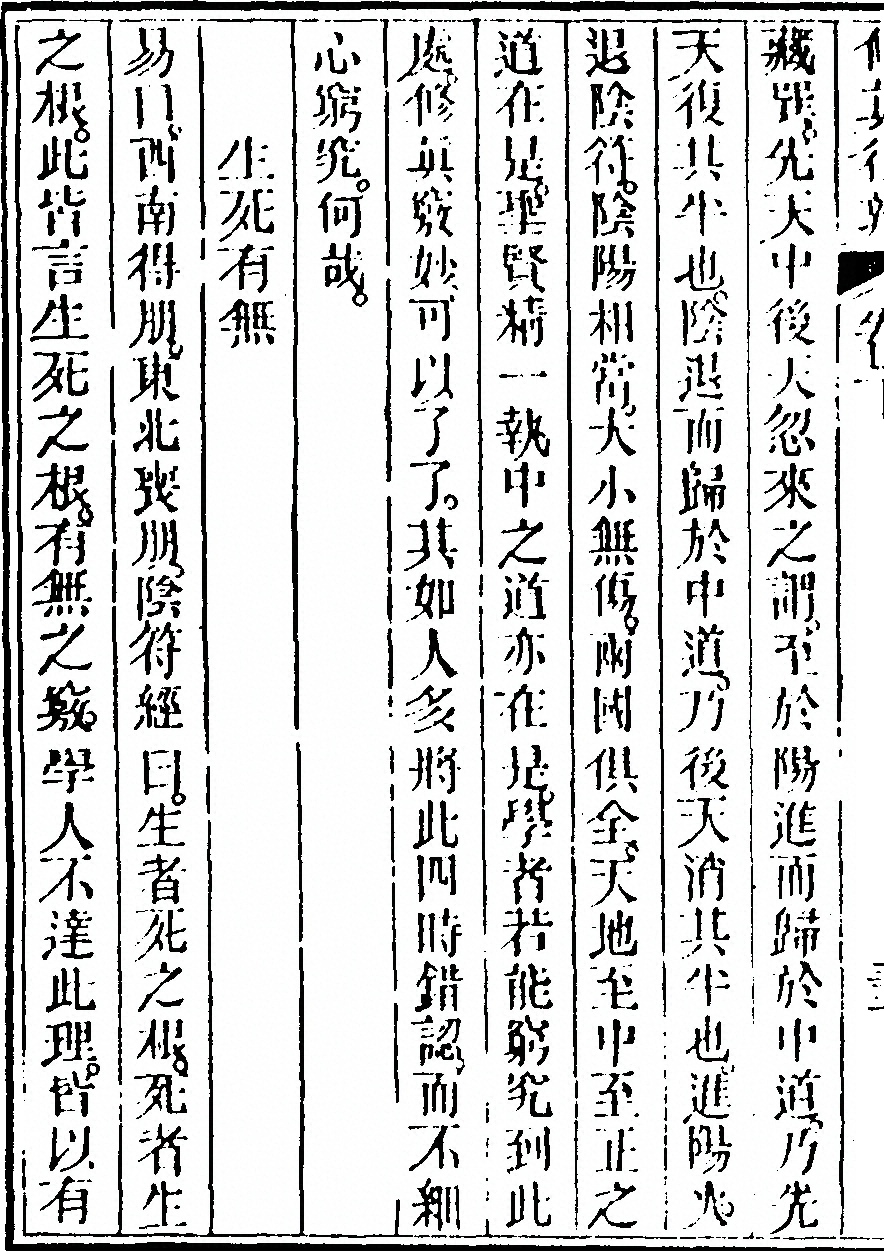 藏踪。先天中後天忽來之謂。至於陽進而歸於中道。乃先
天復其半也。陰退而歸於中道。乃後天消其半也。進陽火。
退陰符。陰陽相當。大小無傷。兩國俱全。天地至中至正之
道在是。聖賢精一執中之道亦在是。學者若能窮究到此
處。修真竅妙。可以了了。其如人多將此四時錯認。而不細
心窮究。何哉。
生死有無
易曰。西南得朋。東北喪朋。陰符經曰。生者死之根。死者生
之根。此皆言生死之根。有無之竅。學人不達此理。皆以有